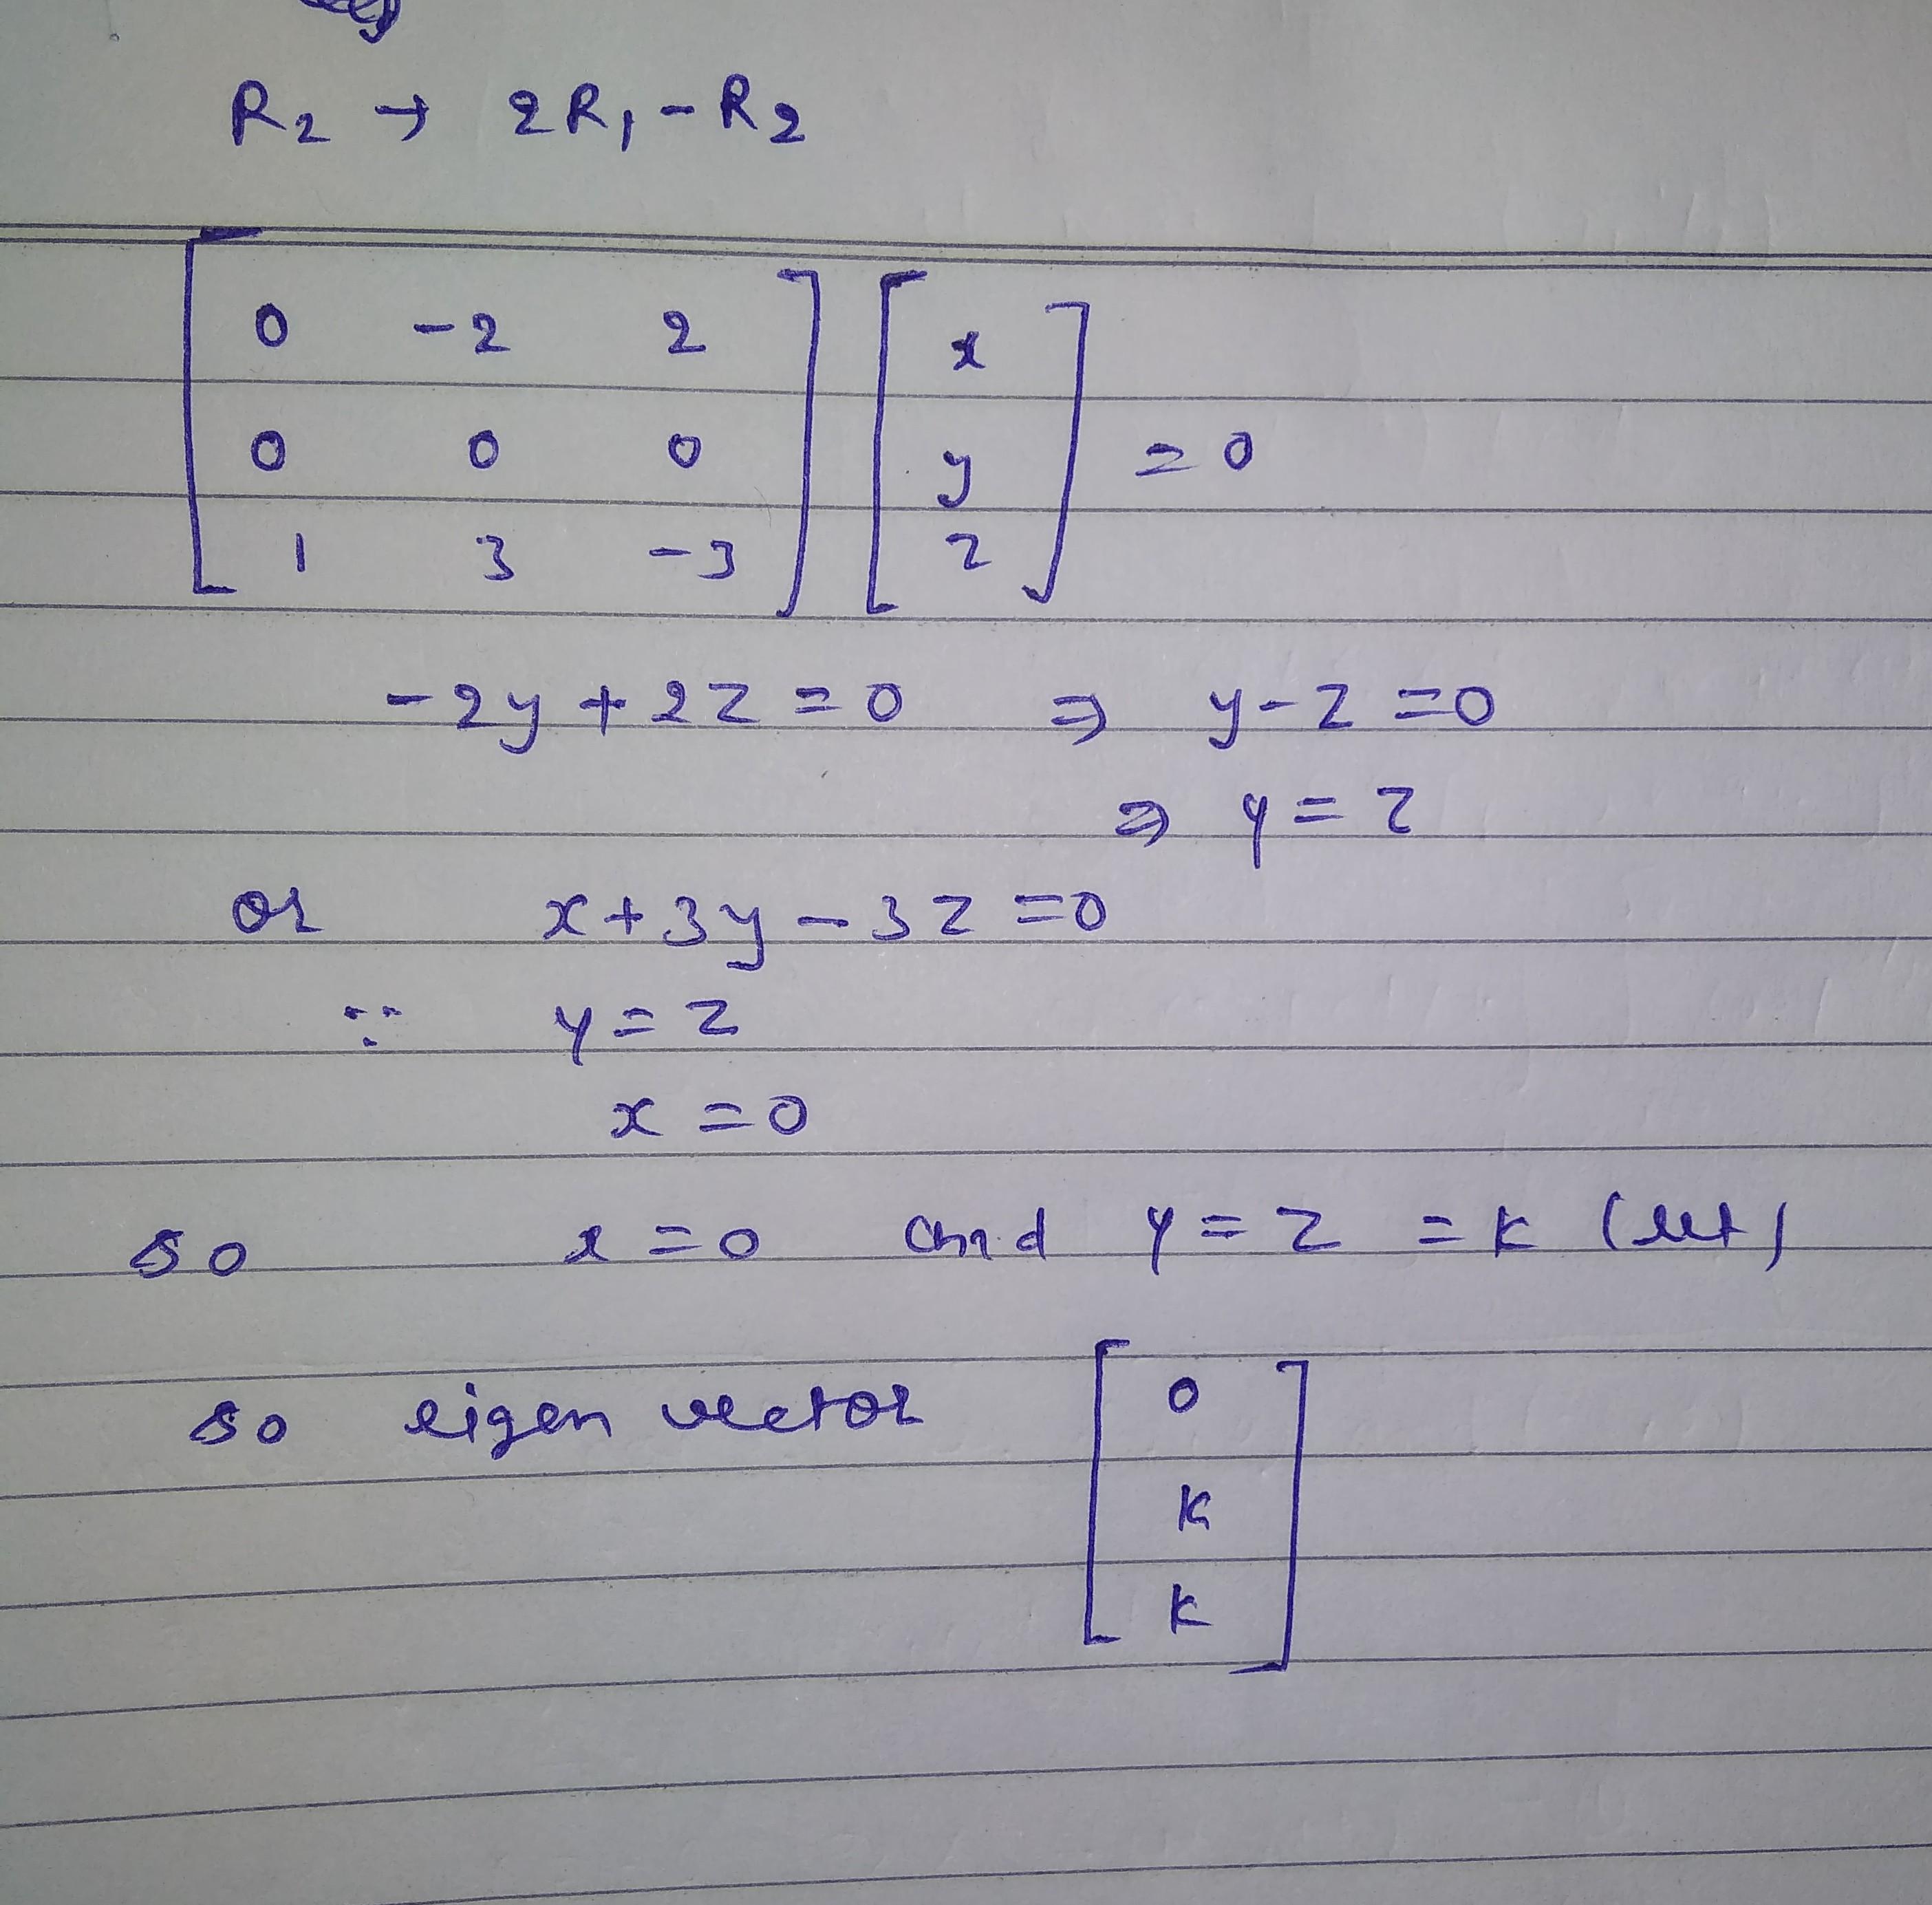 R₂ → 2R₁ - R₂
0 -2 2
0 0 0
1 3 -3
x
y
z
= 0
-2y + 2z = 0 ⇒ y - z = 0
⇒ y = z
or x + 3y - 3z = 0
∵ y = z
x = 0
so x = 0 and y = z = k (let)
so eigen vector
0
k
k